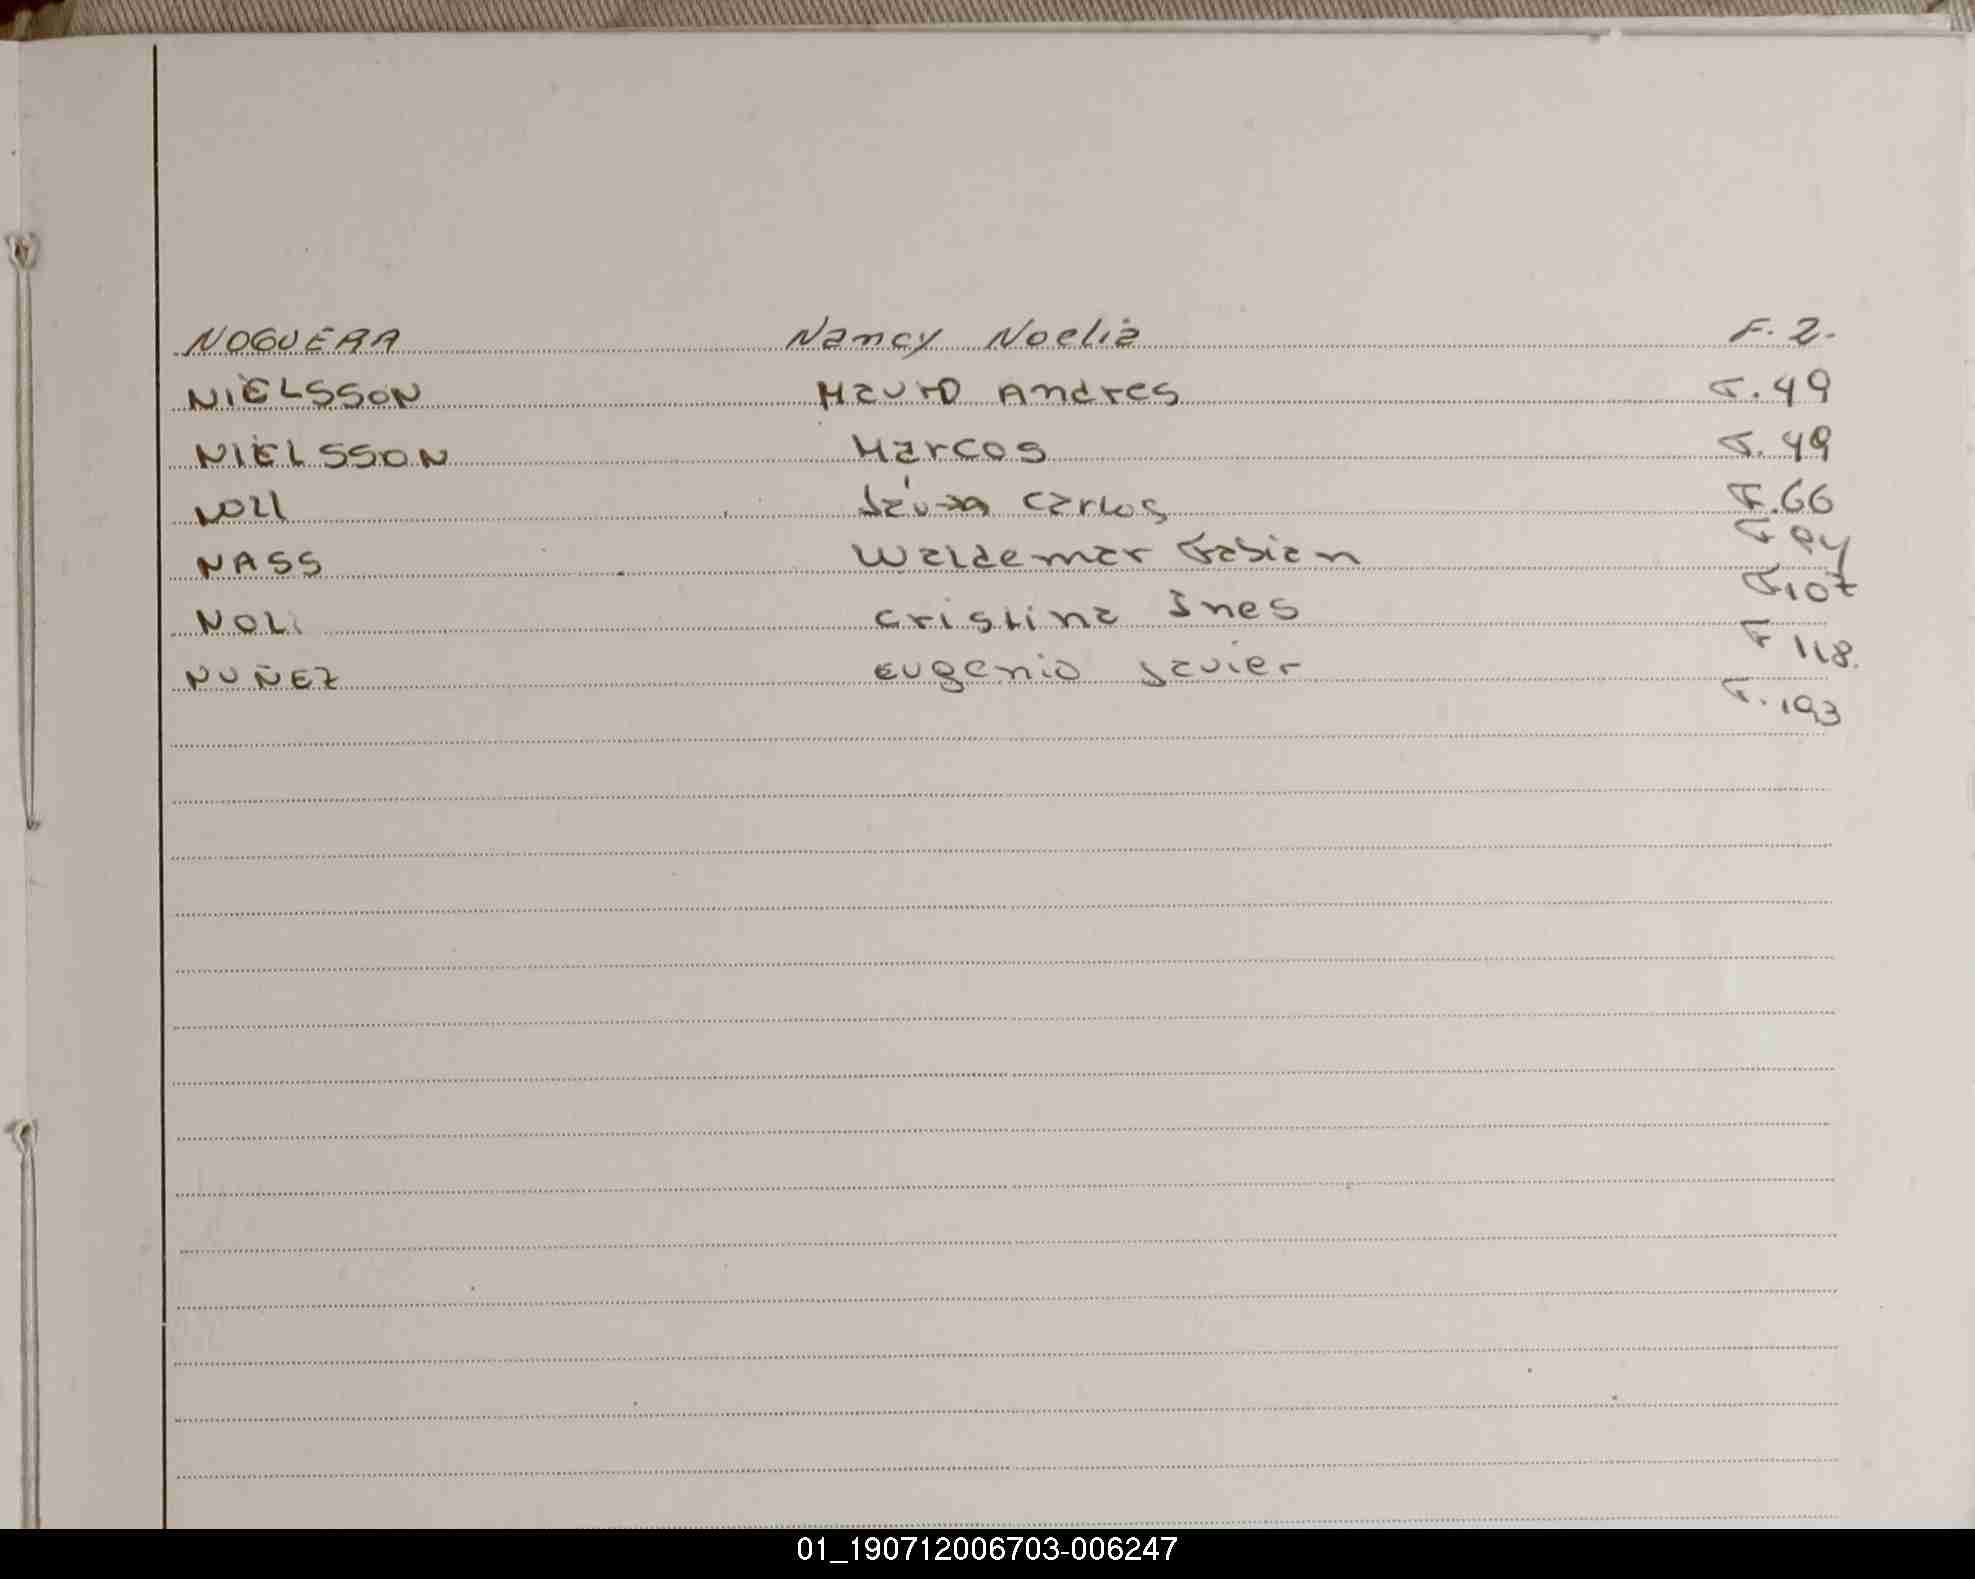 NOGUERA Nancy Noelia F. 2.
NIELSSON Mauro Andres F. 49
NIELSSON Marcos F. 49
NOLL Carlos F. 66
NASS Waldemar Fabian F
Cristina Ines F 107
NUÑEZ Eugenio Javier F 118.
F. 193
01_190712006703-006247